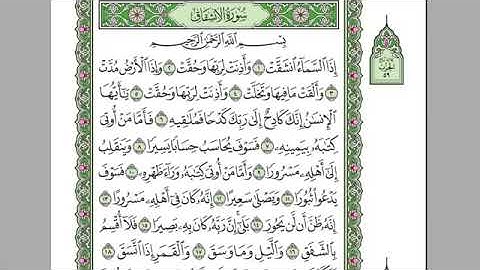 سُورَةُ الانشِقَاقِ
بِسْمِ اللَّهِ الرَّحْمَٰنِ الرَّحِيمِ
إِذَا السَّمَاءُ انشَقَّتْ ١ وَأَذِنَتْ لِرَبِّهَا وَحُقَّتْ ٢ وَإِذَا الْأَرْضُ مُدَّتْ
٣ وَأَلْقَتْ مَا فِيهَا وَتَخَلَّتْ ٤ وَأَذِنَتْ لِرَبِّهَا وَحُقَّتْ ٥ يَٰأَيُّهَا
الْإِنسَٰنُ إِنَّكَ كَادِحٌ إِلَىٰ رَبِّكَ كَدْحًا فَمُلَٰقِيهِ ٦ فَأَمَّا مَنْ أُوتِيَ
كِتَٰبَهُ بِيَمِينِهِ ٧ فَسَوْفَ يُحَاسَبُ حِسَابًا يَسِيرًا ٨ وَيَنقَلِبُ
إِلَىٰ أَهْلِهِ مَسْرُورًا ٩ وَأَمَّا مَنْ أُوتِيَ كِتَٰبَهُ وَرَاءَ ظَهْرِهِ ١٠ فَسَوْفَ
يَدْعُوا ثُبُورًا ١١ وَيَصْلَىٰ سَعِيرًا ١٢ إِنَّهُ كَانَ فِي أَهْلِهِ مَسْرُورًا ١٣
إِنَّهُ ظَنَّ أَن لَّن يَحُورَ ١٤ بَلَىٰ إِنَّ رَبَّهُ كَانَ بِهِ بَصِيرًا ١٥ فَلَا أُقْسِمُ
بِالشَّفَقِ ١٦ وَاللَّيْلِ وَمَا وَسَقَ ١٧ وَالْقَمَرِ إِذَا اتَّسَقَ ١٨
الجزء
٥٩